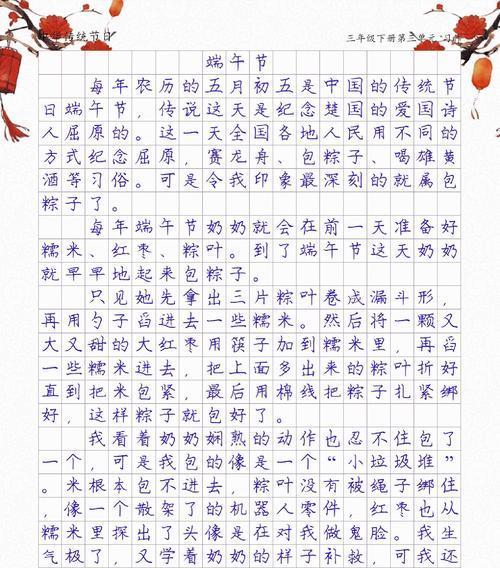 中华传统节日
三年级下册第三单元"习作
端午节
每年农历的五月初五是中国的传统节
日端午节，传说这天是纪念楚国的爱国诗
人屈原的。这一天全国各地人民用不同的
方式纪念屈原，赛龙舟、包粽子、喝雄黄
酒等习俗。可是令我印象最深刻的就属包
粽子了。
每年端午节奶奶就会在前一天准备好
糯米、红枣、粽叶。到了端午节这天奶奶
就早早地起来包粽子。
只见她先拿出三片粽叶卷成漏斗形，
再用勺子舀进去一些糯米。然后将一颗又
大又甜的大红枣用筷子加到糯米里，再舀
一些糯米进去，把上面多出来的粽叶折好
直到把米包紧，最后用棉线把粽子扎紧绑
好，这样粽子就包好了。
我看着奶奶娴熟的动作也忍不住包了
一个，可是我包的像是一个“小垃圾堆”
。米根本包不进去，粽叶没有被绳子绑住
，像一个散架了的机器人零件，红枣也从
糯米里探出了头像是在对我做鬼脸。我生
气极了，又学着奶奶的样子补救，可我还